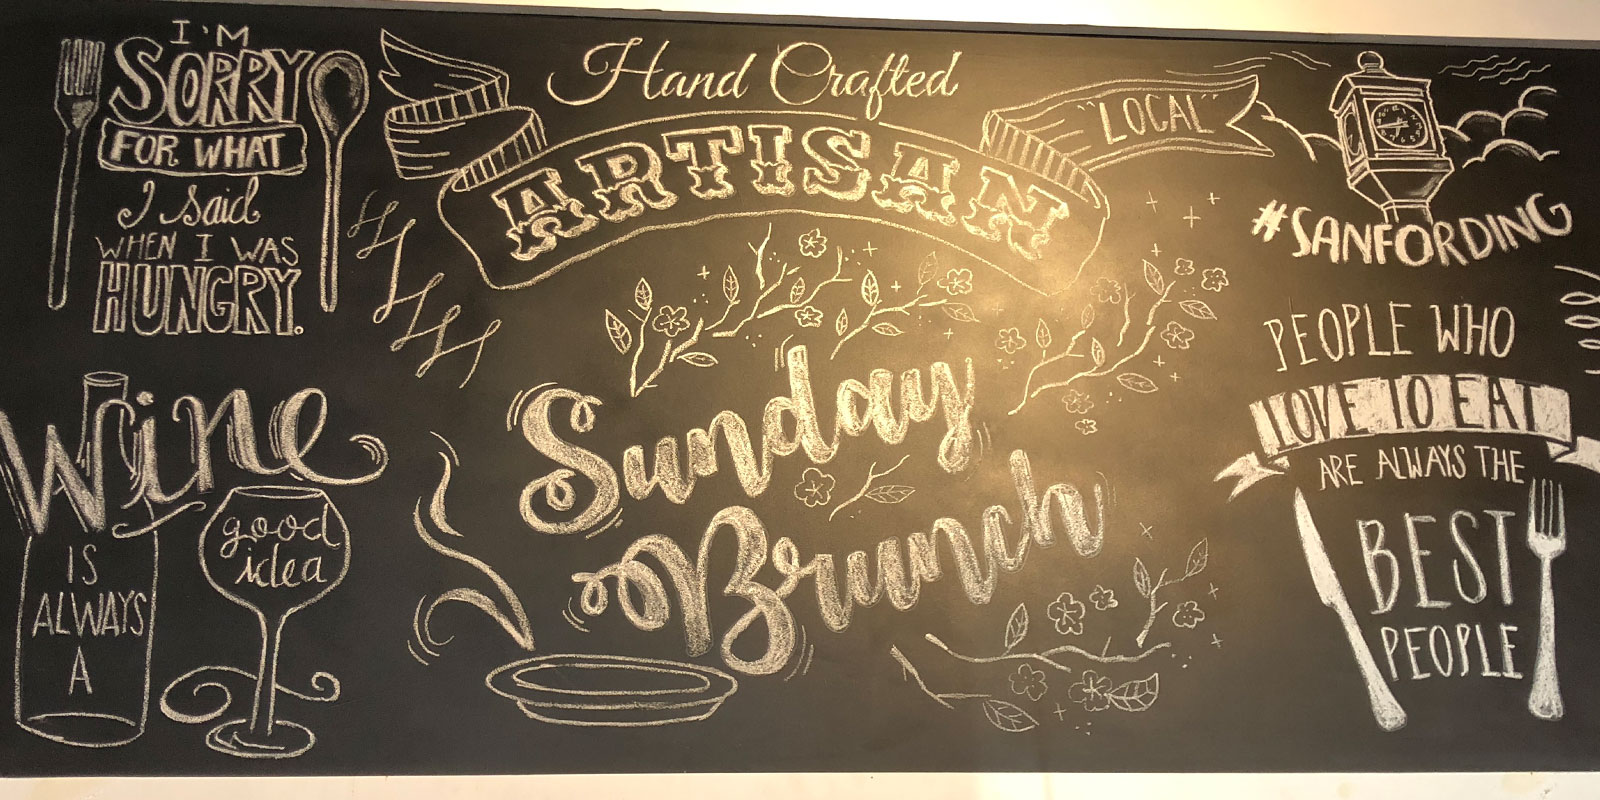 I'M
SORRY
FOR WHAT
I said
WHEN I WAS
HUNGRY.
Wine
IS
ALWAYS
A
good
idea
Hand Crafted
ARTISAN
"LOCAL"
Sunday
Brunch
#SANFORDING
PEOPLE WHO
LOVE TO EAT
ARE ALWAYS THE
BEST
PEOPLE